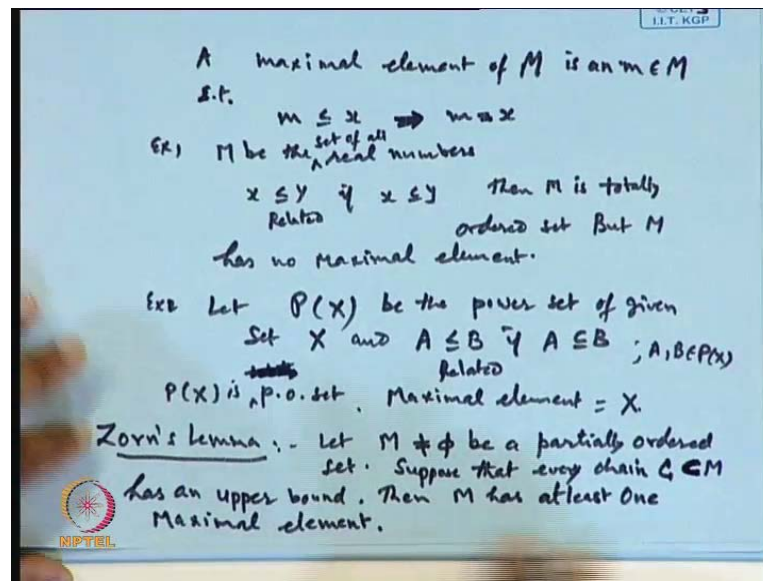 I.I.T. KGP
A maximal element of M is an m ∈ M
s.t.
m ≤ x ⇒ m = x
Ex, M be the set of all real numbers
x ≤ y if x ≤ y then M is totally
Related
ordered set But M
has no maximal element.
Ex2 Let P(X) be the power set of given
Set X and A ≤ B if A ⊆ B ; A, B ∈ P(X)
Related
P(X) is p.o. set. Maximal element = X.
Zorn's Lemma :- Let M ≠ φ be a partially ordered
set. Suppose that every chain C ⊂ M
has an upper bound. Then M has atleast One
Maximal element.
NPTEL